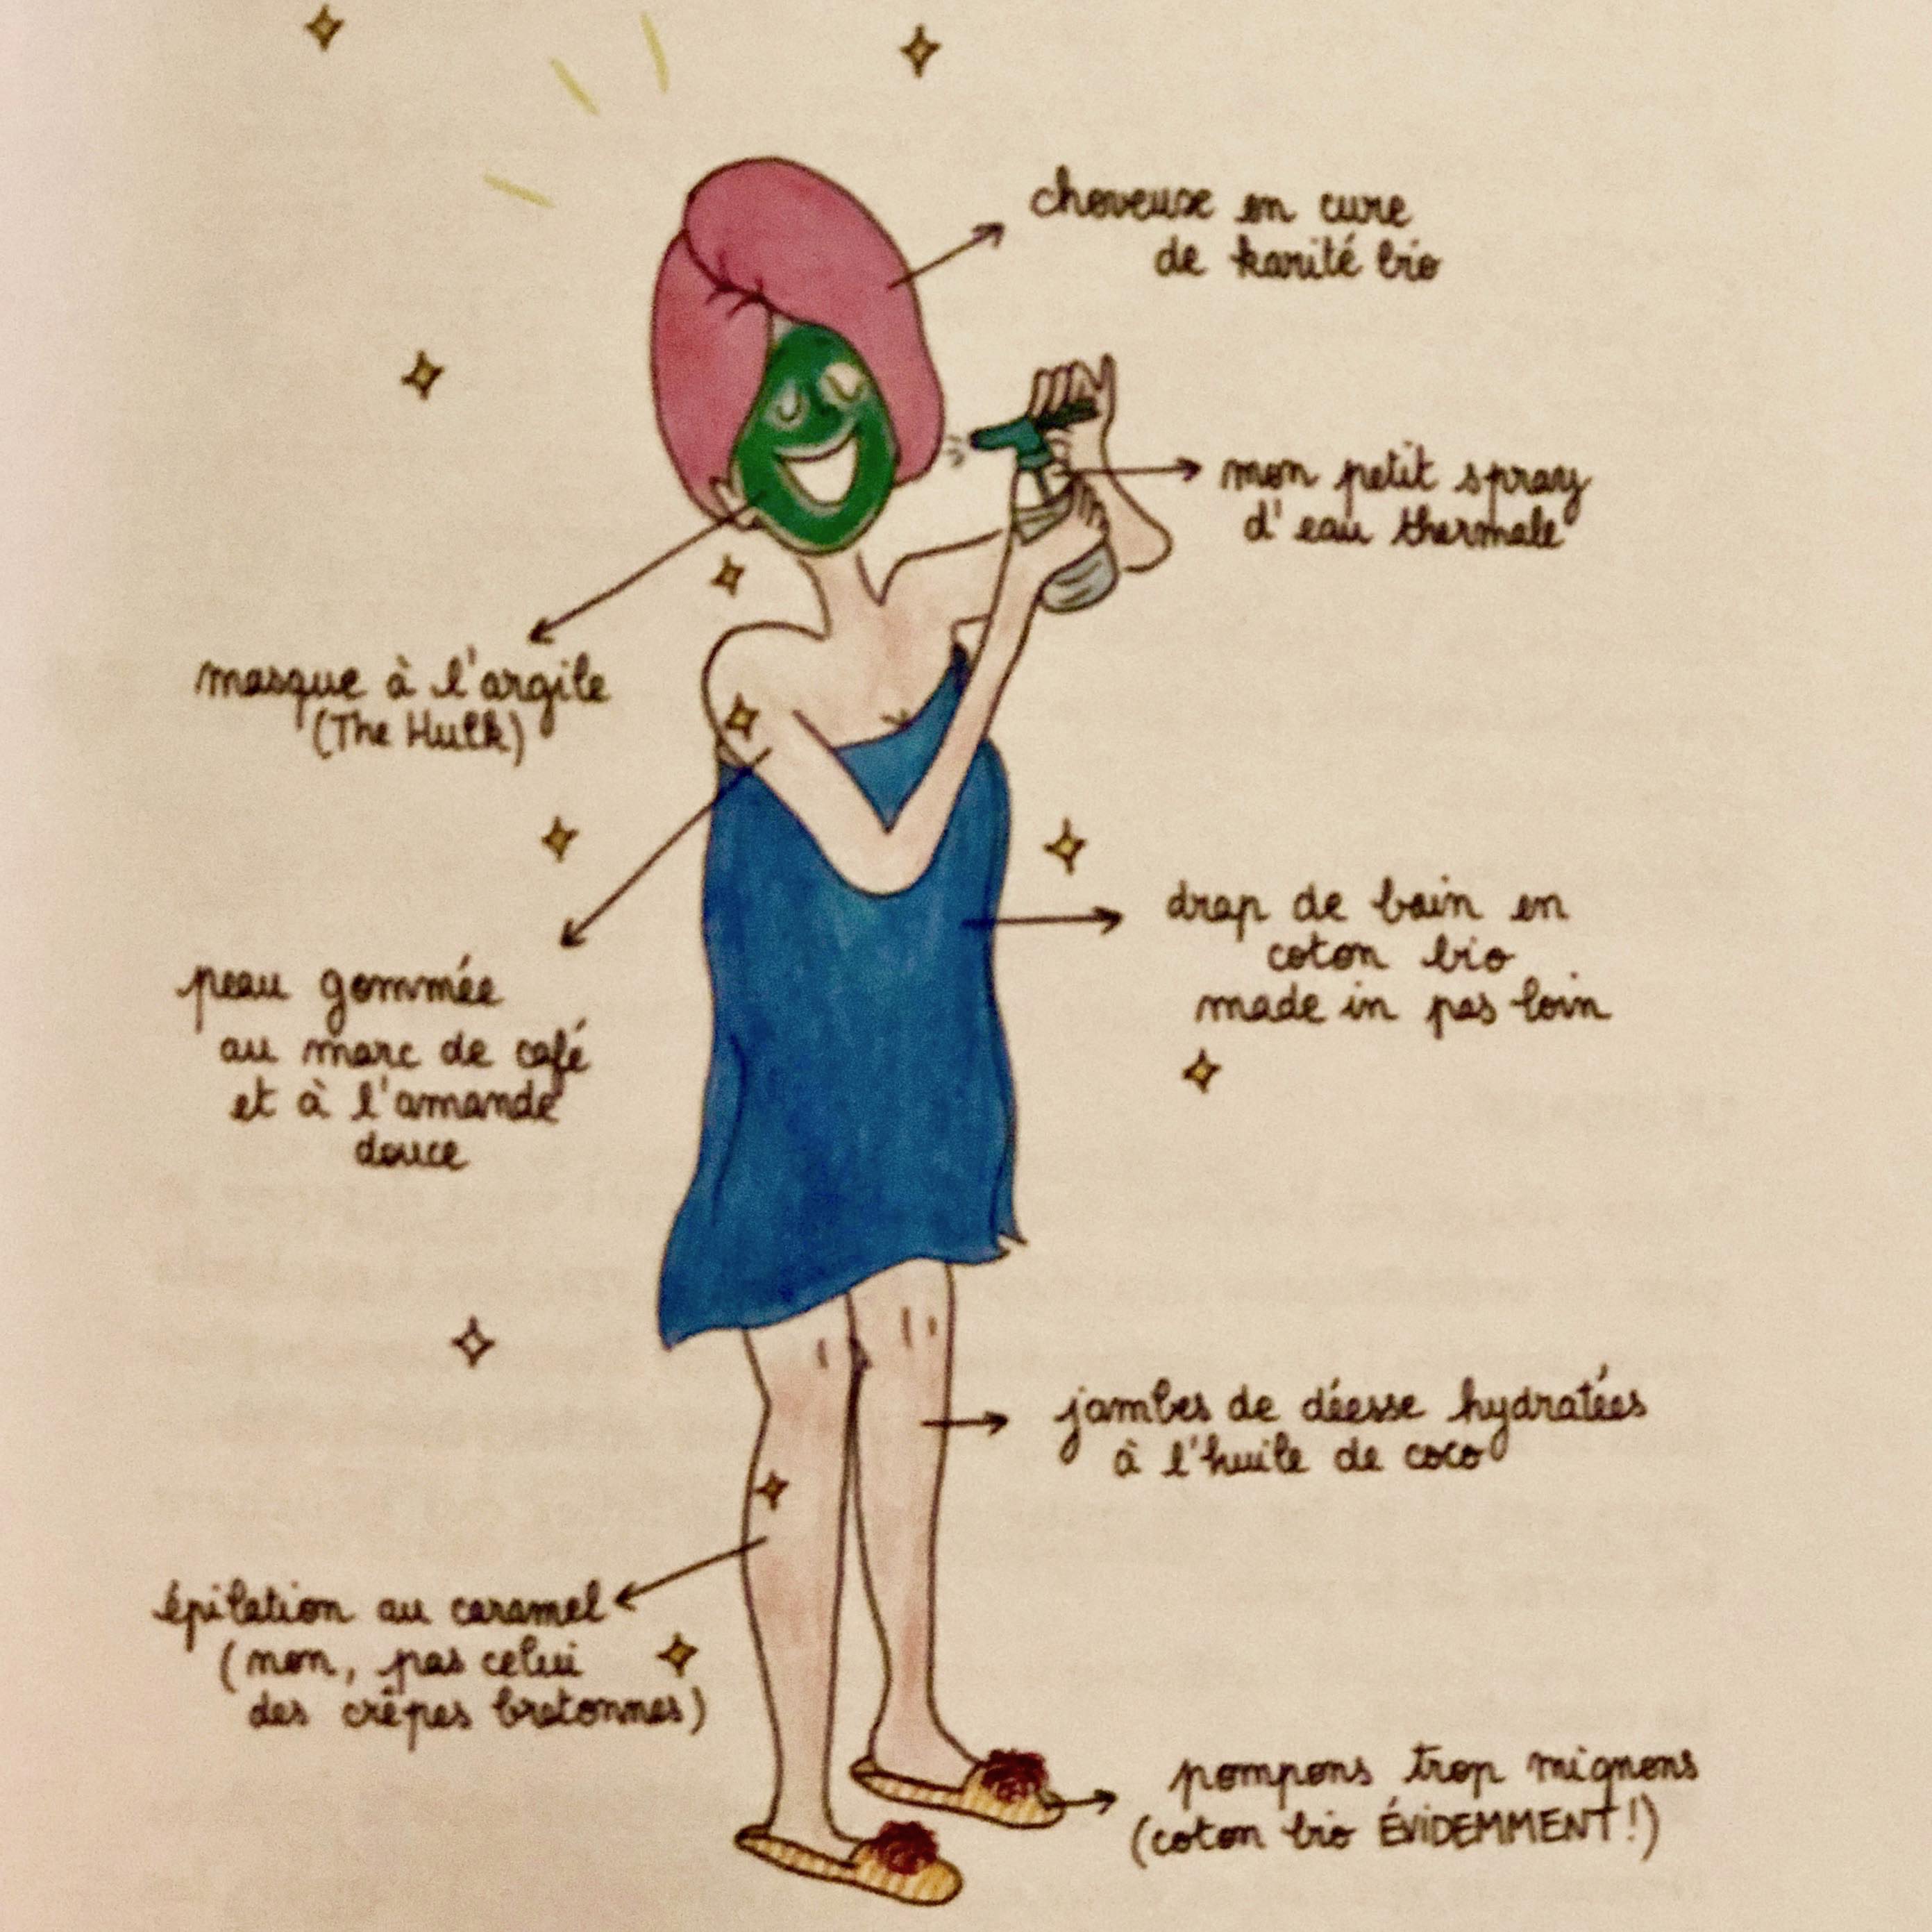 cheveux en cure
de karité bio
mon petit spray
d'eau thermale
masque à l'argile
(The Hulk)
drap de bain en
coton bio
made in pas loin
peau gommée
au marc de café
et à l'amande
douce
jambes de déesse hydratées
à l'huile de coco
épilation au caramel
(non, pas celui
des crêpes bretonnes)
pompons trop mignons
(coton bio ÉVIDEMMENT!)